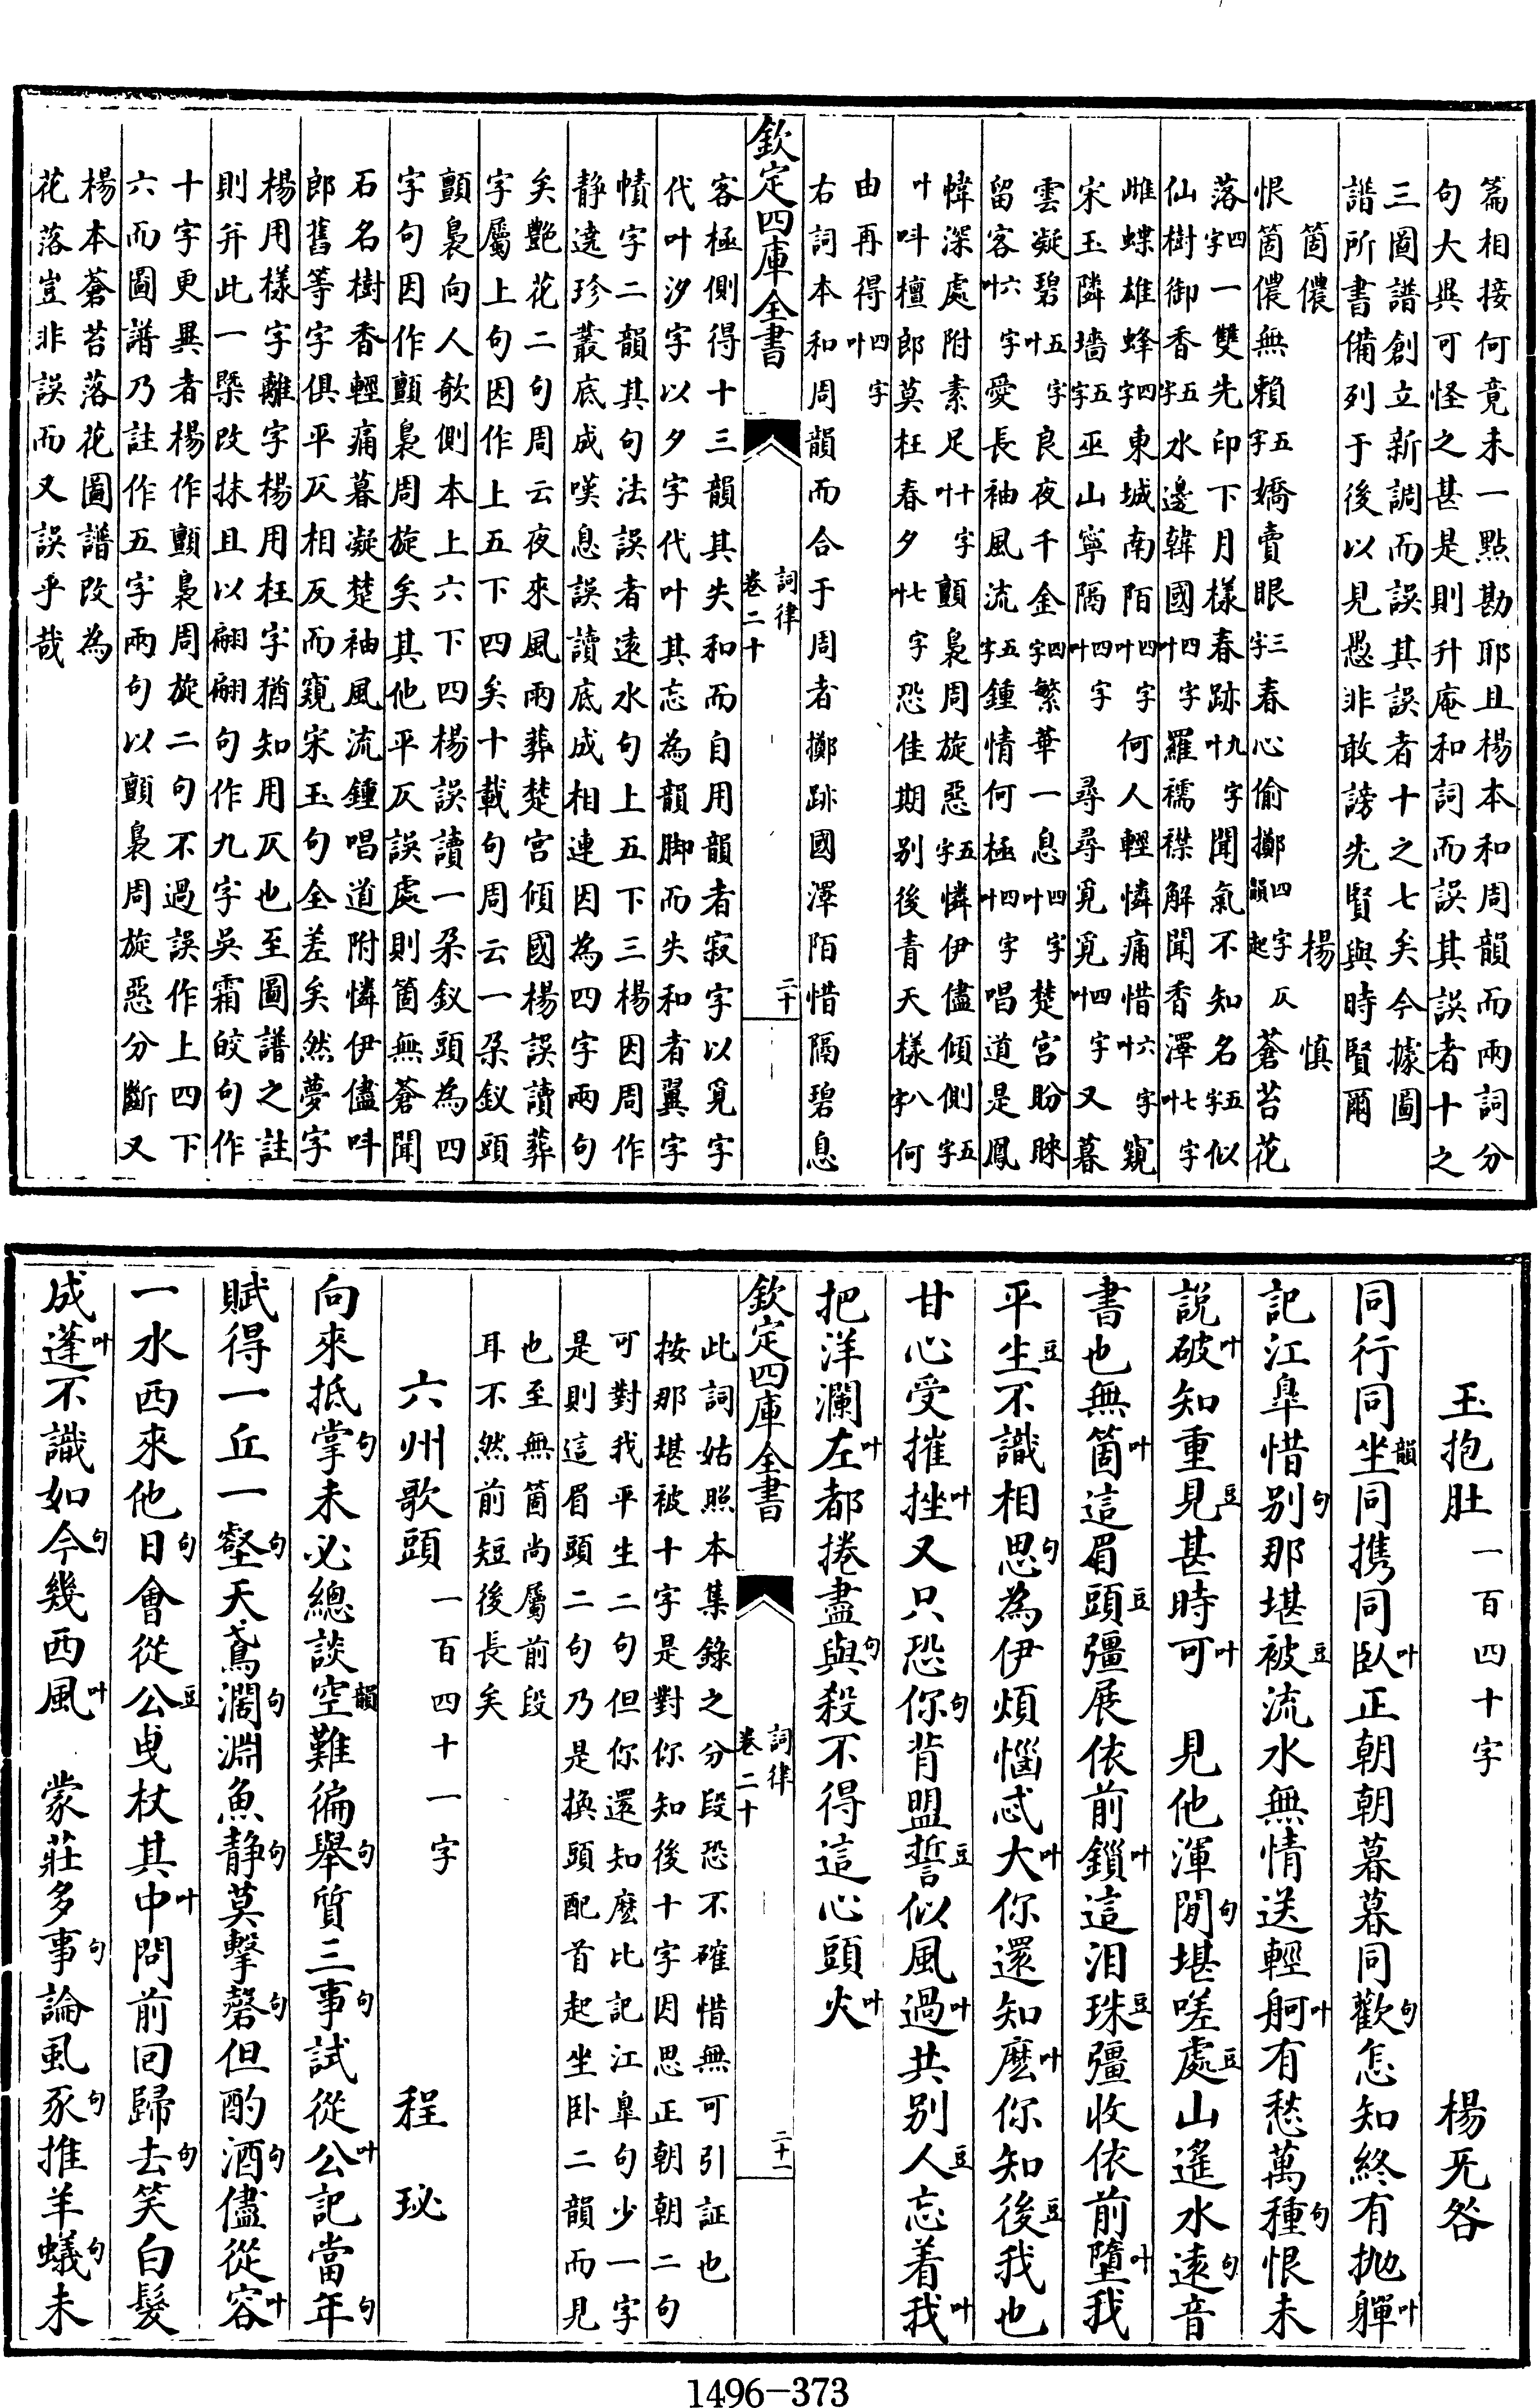 篇相接何竟未一點勘耶且楊本和周韻而兩詞分
句大異可怪之甚是則升庵和詞而誤其誤者十之
三圖譜創立新調而誤其誤者十之七矣今據圖
譜所書備列于後以見愚非敢謗先賢與時賢爾
箇儂 楊慎
恨箇儂無賴五字嬌賣眼三字春心偷擲四字仄韻起蒼苔花
落四字一雙先印下月樣春跡九字叶聞氣不知名五字似
仙樹御香五字水邊韓國四字叶羅襦襟解聞香澤七字叶
雌蝶雄蜂四字東城南陌四字叶何人輕憐痛惜六字叶窺
宋玉隣墻五字巫山寧隔四字叶 尋尋覓覓四字叶又暮
雲凝碧五字叶良夜千金四字繁華一息四字叶楚宮盼睞
留客六字叶愛長袖風流五字鍾情何極四字叶唱道是鳳
幃深處附素足十字叶顫裊周旋惡五字憐伊儘傾側五字
叶呌檀郎莫枉春夕七字叶恐佳期别後青天樣八字何
由再得四字叶
右詞本和周韻而合于周者擲跡國澤陌惜隔碧息
欽定四庫全書 詞律 卷二十 二十
客極側得十三韻其失和而自用韻者寂字以覓字
代叶汐字以夕字代叶其忘為韻脚而失和者翼字
幘字二韻其句法誤者逺水句上五下三楊因周作
静逺珍叢底成嘆息誤讀底成相連因為四字兩句
矣艶花二句周云夜來風雨葬楚宮傾國楊誤讀葬
字屬上句因作上五下四矣十載句周云一朶釵頭
顫裊向人欹側本上六下四楊誤讀一朶釵頭為四
字句因作顫裊周旋矣其他平仄誤處則箇無蒼聞
石名樹香輕痛暮凝楚袖風流鍾唱道附憐伊儘呌
郎舊等字俱平仄相反而窺宋玉句全差矣然夢字
楊用樣字離字楊用枉字猶知用仄也至圖譜之註
則并此一槩改抹且以翩翩句作九字吳霜皎句作
十字更異者楊作顫裊周旋二句不過誤作上四下
六而圖譜乃註作五字兩句以顫裊周旋惡分斷又
楊本蒼苔落花圖譜改為
花落豈非誤而又誤乎哉
玉抱肚一百四十字 楊无咎
同行同坐韻同携同卧叶正朝朝暮暮同歡句怎知終有抛嚲叶
記江臯惜别句那堪被豆流水無情送輕舸叶有愁萬種句恨未
説破叶知重見豆甚時可叶 見他渾閒句堪嗟處豆山遙水逺句音
書也無箇叶這眉頭豆彊展依前鎖叶這泪珠豆彊收依前墮叶我
平生豆不識相思句為伊煩惱忒大叶你還知麽叶你知後豆我也
甘心受摧挫叶又只恐你句背盟誓豆似風過叶共别人豆忘着我叶
把洋瀾左叶都捲盡與句殺不得這心頭火叶
欽定四庫全書 詞律 卷二十 二十一
此詞姑照本集錄之分段恐不確惜無可引証也
按那堪被十字是對你知後十字因思正朝朝二句
可對我平生二句但你還知麽比記江臯句少一字
是則這眉頭二句乃是換頭配首起坐卧二韻而見
也至無箇尚屬前段
耳不然前短後長矣
六州歌頭一百四十一字 程珌
向來抵掌句未必總談空韻難徧舉句質三事句試從公叶記當年句
賦得一丘一壑句天鳶濶句淵魚静句莫擊磬句但酌酒句儘從容叶
一水西來他日句會從公豆曵杖其中叶問前囘歸去句笑白髮
成蓬叶不識如今句幾西風叶 蒙莊多事句論虱豕句推羊蟻句未
1496-373